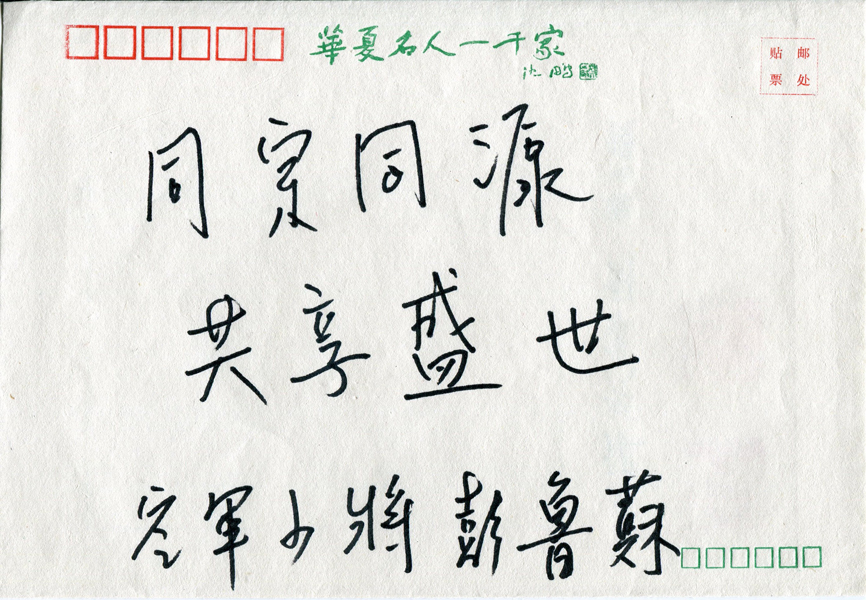 華夏名人一千家
沈鹏
贴 邮
票 处
同宗同源
共享盛世
空軍少將彭魯蘇